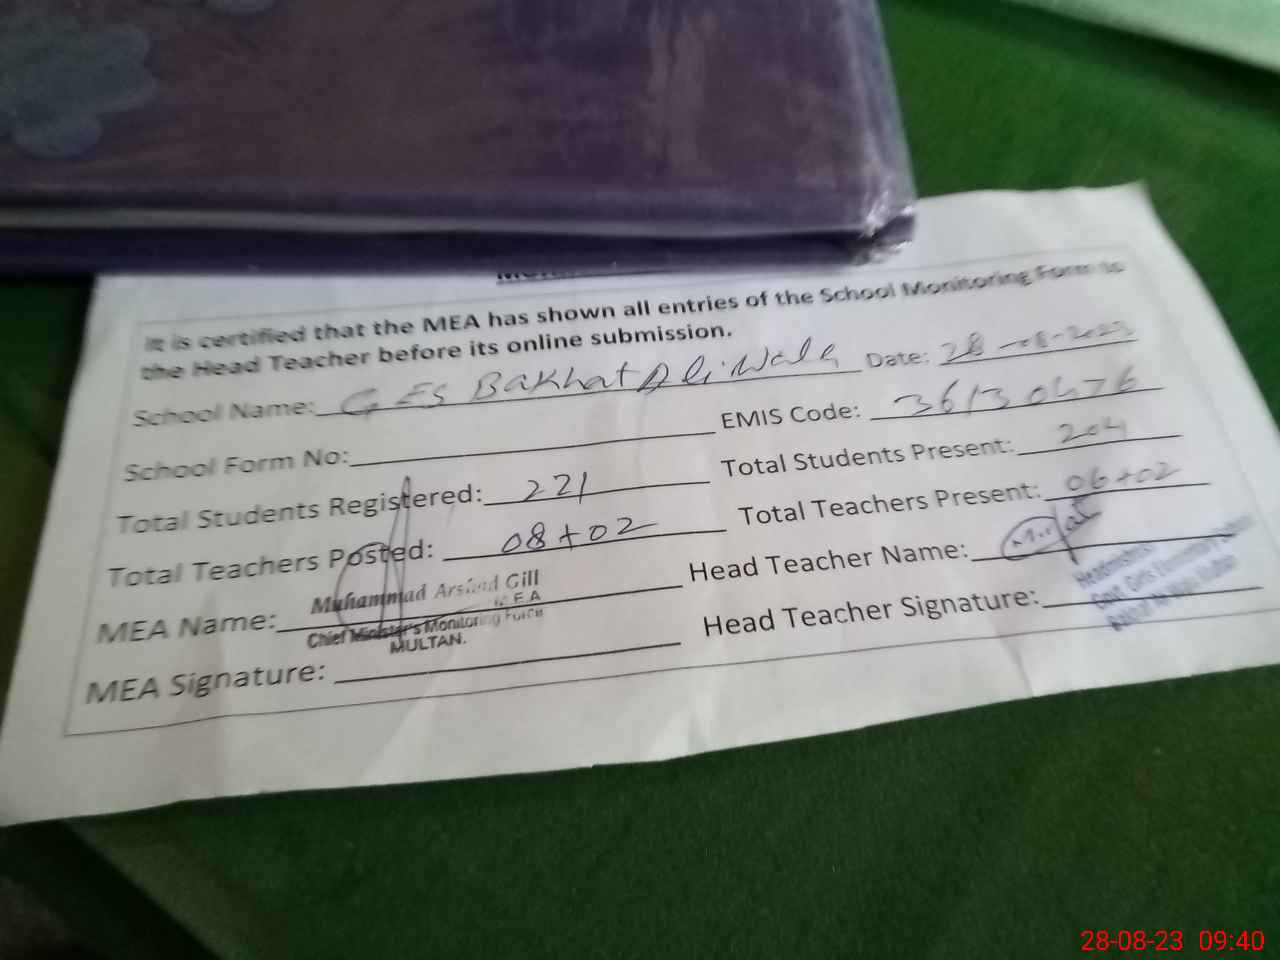 It is certified that the MEA has shown all entries of the School Monitoring Form to
the Head Teacher before its online submission.
School Name: GES Bakhat Ali Wala Date: 28-08-2023
School Form No: EMIS Code: 36130476
Total Students Registered: 221 Total Students Present: 204
Total Teachers Posted: 08+02 Total Teachers Present: 06+02
MEA Name: Muhammad Arshad Gill Head Teacher Name:
M.E.A
Chief Minister's Monitoring Force
MULTAN.
Headmistress
Govt. Girls Elementary
MEA Signature: Head Teacher Signature:
28-08-23 09:40